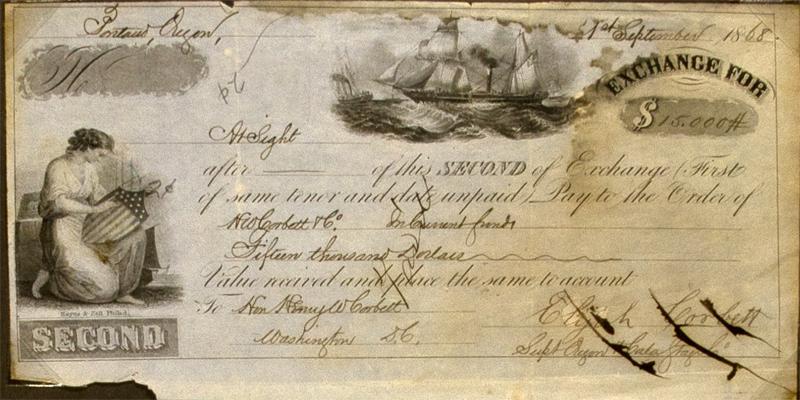 Portland, Oregon, 1st September 1868.
No
EXCHANGE FOR
$ 15.000
At Sight
after of this SECOND of Exchange (First
of same tenor and date unpaid) Pay to the Order of
H W Corbett & Co. In Current funds
Fifteen thousand Dollars
Value received and place the same to account
To Hon Henry W Corbett
Washington D.C.
Elijah Corbett
Supt Oregon & Cala Stage Co
SECOND